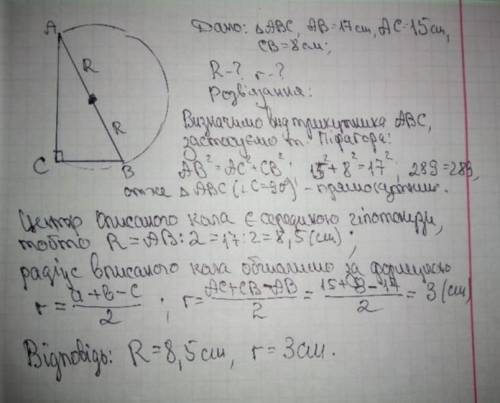 Дано: △ABC, AB=17см, AC=15см,
CB=8см;
R-? r-?
Розв'язання:
Визначимо вид трикутника ABC,
застосуємо т. Піфагора:
AB²=AC²+CB², 15²+8²=17², 289=289,
отже △ABC (∠C=90°) - прямокутник.
Центр вписаного кола є серединою гіпотенузи,
тобто R=AB:2=17:2=8,5(см);
радіус вписаного кола обчислимо за формулою
r=a+b-c/2; r=AC+CB-AB/2=15+8-17/2=3(см)
Відповідь: R=8,5см, r=3см.
A
R
R
C
B